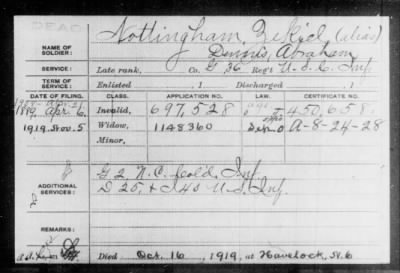 DEAD
NAME OF SOLDIER: Nottingham, Zekiel (alias)
Dennis, Abraham
SERVICE: Late rank, Co. G 36 Reg't U.S.C. Inf.
TERM OF SERVICE: Enlisted 1 Discharged 1
DATE OF FILING. CLASS. APPLICATION NO. LAW. CERTIFICATE NO.
1889, Apr. 6. Invalid, 697,528 450,658
1919. Nov. 5. Widow, 1148360 A-8-24-28
Minor,
ADDITIONAL SERVICES: G 2 N.C. Cold. Inf.
D 25, & I 40 U.S. Inf.
REMARKS:
Died Oct. 16, 1919, at Havelock, N.C